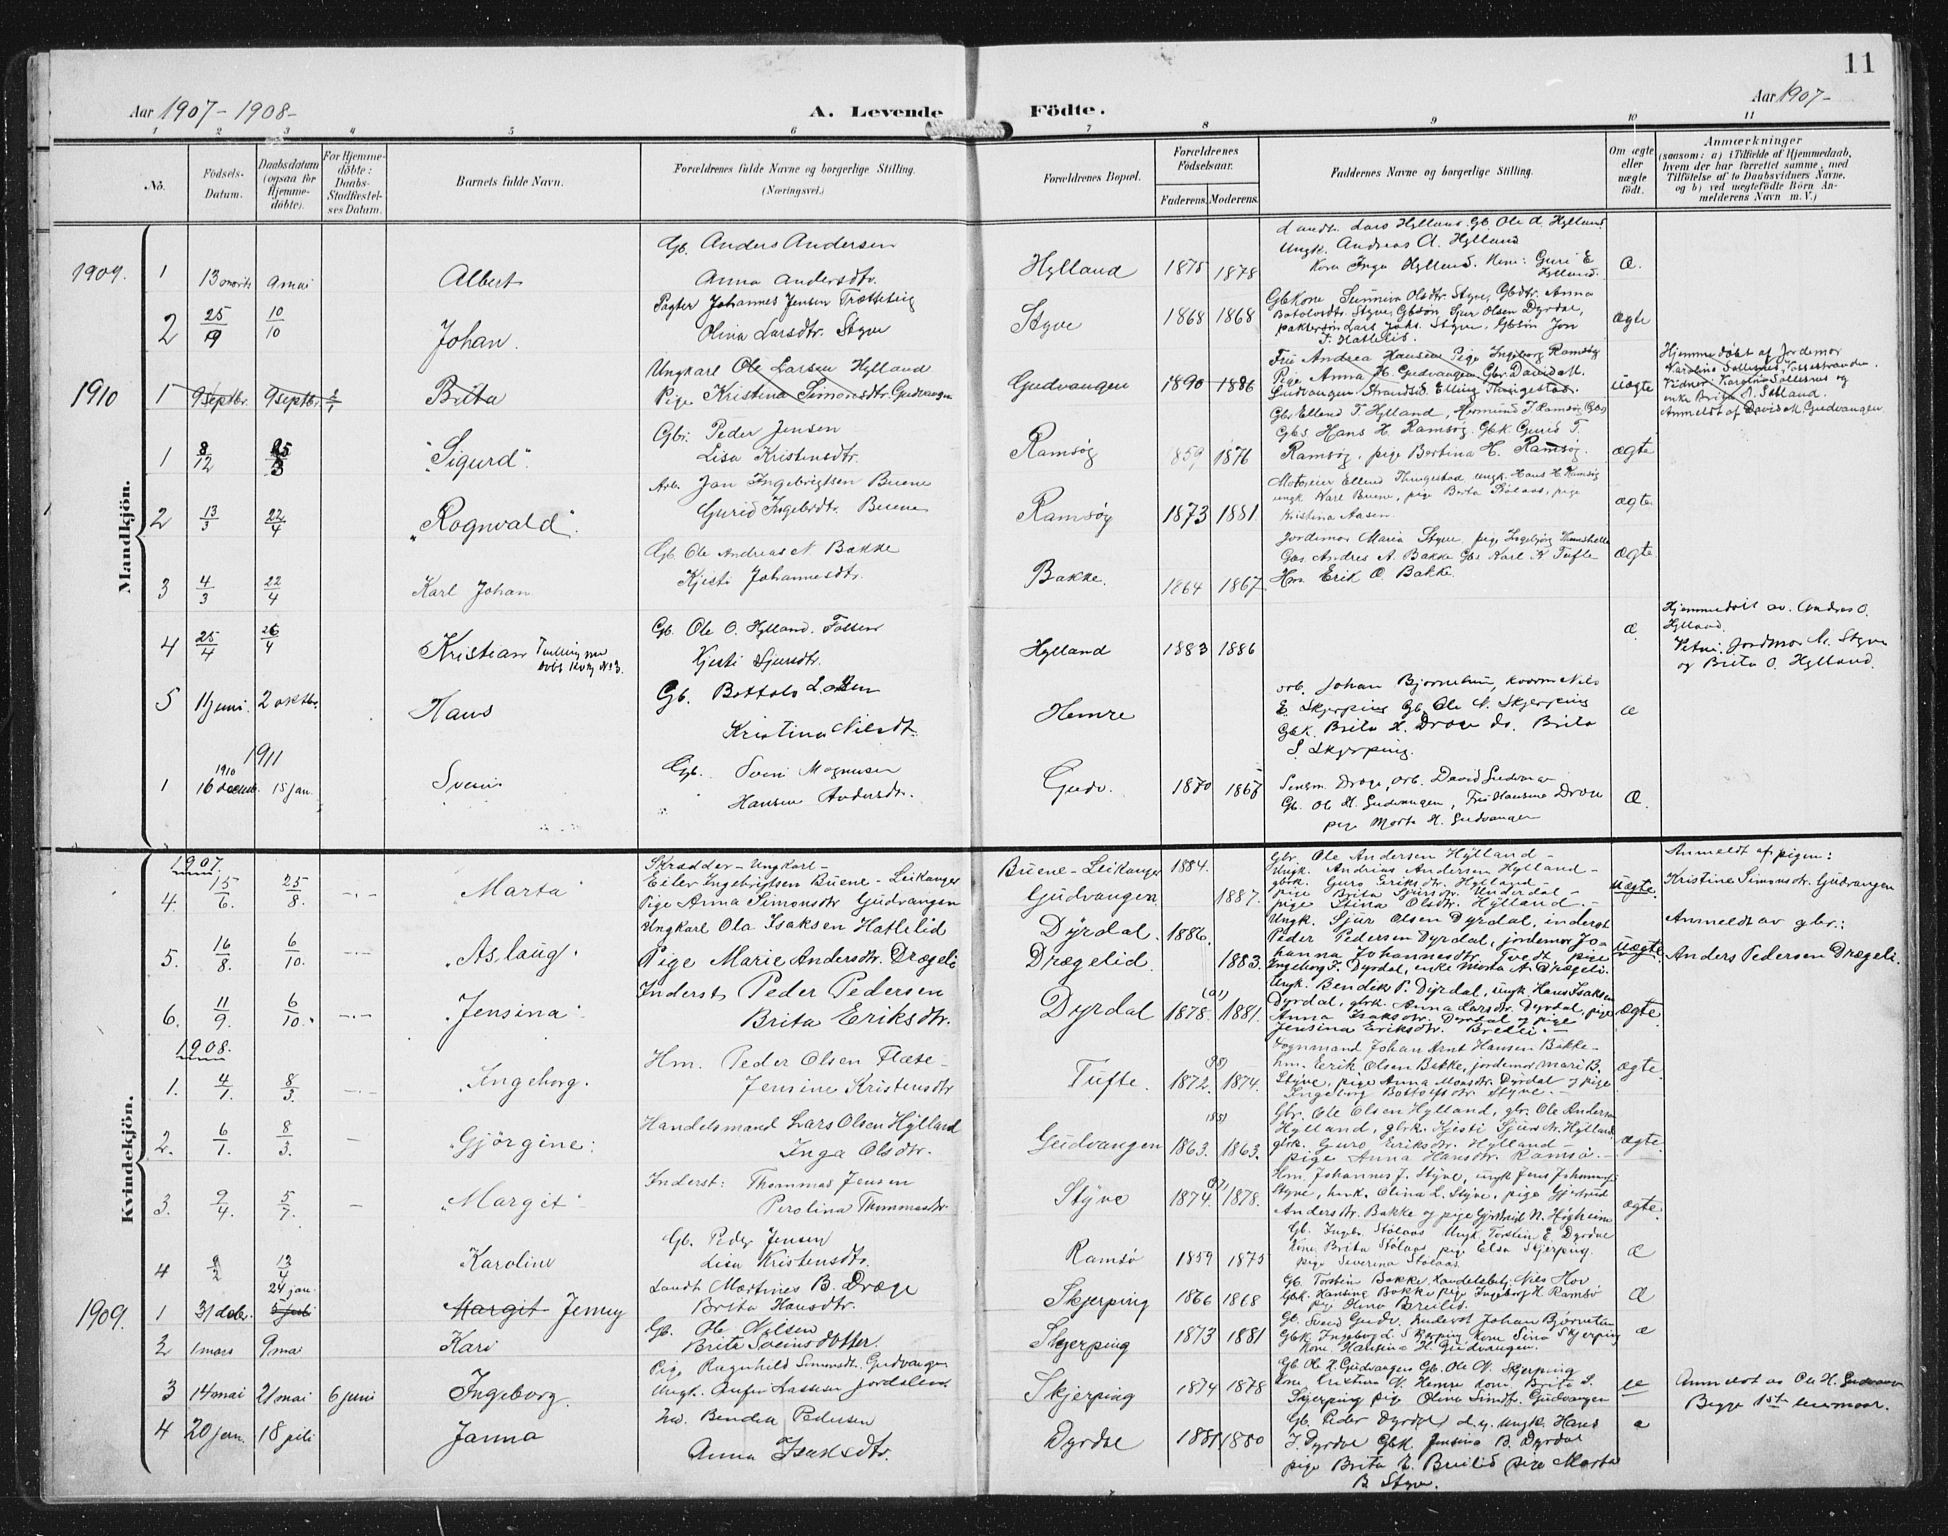 11
Aar 1907-1908-
A. Levende Födte.
Aar 1907-
1 2 3 4 5 6 7 8 9 10 11
No.
Födsels-Datum.
Daabsdatum (ogsaa for Hjemme-döbte).
For Hjemme-döbte: Daabs-Stadfæstel-ses Datum.
Barnets fulde Navn.
Forældrenes fulde Navne og borgerlige Stilling.
(Næringsvei.)
Forældrenes Bopæl.
Forældrenes Födselsaar.
Faderens. Moderens.
Faddernes Navne og borgerlige Stilling.
Om ægte eller uægte födt.
Anmærkninger
(saasom: a) i Tilfælde af Hjemmedaab, hvem der har forrettet samme, med Tilföielse af to Daabsvidners Navne, og b) ved uægtefödte Börn An-melderens Navn m. V.)
Mandkjön.
1909. 1 13 9 mai Albert Gb. Anders Andersen
Anna Andersdtr. Hylland 1878 1878 Æ.
Lars Hylland. Gb. Ole A. Hylland
Ungk. Andreas A. Hylland
Kone Inga Hylland. Guri E Hylland.
2 25/9 10/10 Johan. Johannes Jensen
Olina Larsdtr. Styve Styve 1868 1868 ægte
Gbkone Sunniva Olsdtr. Styve, Gbdtr. Anna
Styve, Gbsön Sjur Olsen Dyrdal,
Lars Johs. Styve, Gbsön Jon
1910 1 9 septbr. 9 septbr. Brita Ungkarl Ole Larsen Hylland
Pige Kristina Simonsdtr. Gudvangen Gudvangen 1890 1886 uægte
Andrea Hansen Pige Ingeborg Ramsög
Pige Anna H. Gudvangen Gbr. David M.
Gudvangen. Strandsid. Elling Thungestad.
Hjemmedöbt af Jordmor
Anmeldt af David M. Gudvangen
1 8/12 25/3 "Sigurd". Gbr. Peder Jensen
Lisa Kristensdtr. Ramsög 1859 1876 ægte
Gbr Ellend T. Hylland, Hermund T Ramsög
Hans H. Ramsög. Gbk. Gurid T.
Ramsög, pige Bertina H. Ramsög.
2 13/3 22/4 "Rognvald". Arb. Jon Ingebrigtsen Buene
Gurid Ingebrdtr. Buene Ramsög 1873 1881 ægte
Ellend Thungestad ungk. Hans H. Ramsög
ungk Karl Buene, pige Berta Stölaas, pige
Kristina Aasen.
3 4/3 22/4 Karl Johan Gb. Ole Andreas N Bakke
Kjersti Johannesdtr. Bakke. 1864 1867 ægte
Jordemor Maria Styve pige Ingebjörg
Andres A. Bakke Gbr Karl K Tufte
Hm Erik O. Bakke.
4 25/4 26/4 Kristian Gb. Ole O. Hylland.
Kjersti Sjursdtr. Hylland 1883 1886 æ.
Hjemmedöbt av. Andres O. Hylland.
Jordmor M. Styve
og Brita O. Hylland.
5 11 juni. 2 oktbr. Hans Gb. Bottolv Larsen
Kristina Nilsdt. Hemre æ
arb. Johan Björnetun, Nils
E. Skjerping Gb. Ole N. Skjerping
Gbk. Brita H. Dræge Brita
S. Skjerping.
1911
1 1910 16 decemb. 15 jan. Svein Gb. Svein Magnusen
Hansine Andersdtr. Gudv. 1870 1868 Æ.
Dræge, arb. David Gudvangen
Gb. Ole H. Gudvangen, Hansine Dræge
pige Marta H. Gudvangen
Kvindekjön.
1907.
4. 15/6. 25/8. -.- "Marta" Skrædder - Ungkarl -
Eiler Ingebrigtsen Buene - Leikanger
Pige Anna Simonsdtr. Gudvangen Buene - Leikanger Gudvangen 1884. 1887. uægte.
Gbr. Ole Andersen Hylland -
Ungk. Andrias Andersen Hylland -
gbrk. Guro Eriksdtr. Hylland -
pige Brita Sjursdtr. Underdal -
pige Stina Olsdtr. Hylland. -
Anmeldt af pigen:
Kristine Simonsdtr. Gudvangen
5. 16/8. 6/10. -.- "Aslaug". Ungkarl Ola Isaksen Hatlelid
Pige Marie Andersdtr. Drægeli Dyrdal. Drægelid. 1886. 1883. uægte.
Ungk. Sjur Olsen Dyrdal, inderst
Peder Pedersen Dyrdal, jordemor Jo-
hanna Johannesdtr. Tvedt pige
Ingeborg J. Dyrdal, enke Marta A. Drægeli.
Anmeldt av gbr.:
Anders Pedersen Drægeli.
6. 11/9. 6/10. -.- "Jensina". Inderst Peder Pedersen
Brita Eriksdtr. Dyrdal 1878. (01) 1881. ægte.
Ungk. Bendik P. Dyrdal, ungk Hans Isaksen
Dyrdal, gbrk. Anna Larsdtr. Dyrdal, pige
Anna Isaksdtr. Dyrdal og pige
Jensina Eriksdtr. Breili. -
1908.
1. 4/1. 8/3. -.- "Ingeborg". Hm. Peder Olsen Flæte -
Jensine Kristensdtr Tufte. 1872. (98) 1874. ægte.
Sognmand Johan Arnt Hansen Bakke -
hm. Erik Olsen Bakke, jordemor Mari B.
Styve, pige Anna Monsdtr. Dyrdal og pige
Ingeborg Bottolfsdtr Styve. -
2. 6/1. 8/3. - "Gjörgine": Handelsmand Lars Olsen Hylland
Inga Olsdtr. Gudvangen 1863. 1863. ægte.
Gbr. Ole Olsen Hylland, gbr. Ole Andersen
Hylland, gbrk. Kjersti Sjursdtr. Hylland
gbrk. Guro Eriksdtr. Hylland -
pige Anna Hansdtr. Ramsö. -
3. 2/4. 5/7. - "Margit" Inderst: Thommas Jensen
Perolina Thommasdtr. Styve 1874 1878. ægte.
Hm. Johannes J. Styve, ungk Jens Johannes
Styve, husk. Olina L. Styve, pige Gjertrud
Andersdtr. Bakke og pige Gjertrud N. Högheim
4 13/4 Karoline Gb. Peder Jensen
Lisa Kristensdtr. Ramsö 1859 1875 Æ
Gb. Ingebr Stölaas Ungk. Torstein E. Dyrdal
Kone Brita Stölaas pige Elsa Skjerping.
pige Severina Stölaas
1909. 1 31 dcbr. 24 jan. Margit Jenny Landh Martines B. Dræge
Brita Hansdtr. Skjerping 1866 1868 Æ
Gb. Torstein Bakke, Nils Hov
Gbk. Hansine Bakke pige Ingeborg H Ramsö
pige Stina Breilid.
2 1 mars 9 mai Kari Gb. Ole Nilsen
Brita Sveinsdotter. Skjerping 1873 1881 æ
Gb. Svend Gudv. inderst Johan Björnetun
Gbk Ingeborg L. Skjerping Kone Sina Skjerping
Kone. Hansine H. Gudvangen.
3 14 mai 21 mai 6 juni Ingeborg. Pige Ragnhild Simonsdtr. Gudvangen
Ungk. Jordalsnes Skjerping 1874 1878
Gb. Ole H. Gudvangen Gb. Ole N. Skjerping
Kone Kristina N Hemre Kone Brita S.
Skjerping pige Olina Gudvangen
Anmeldt av Ole H. Gudvangen
Begge 1ste leiermaal.
4 20 jun. 18 juli Janna Bendik Pedersen
Anna Isaksdtr. Dyrdal 1881 1880 æ
Gb. Peder Dyrdal d.y. ungk. Hans
I. Dyrdal Gbk. Jensina B. Dyrdal
pige Brita E. Breilid pige Marta
B Styve.